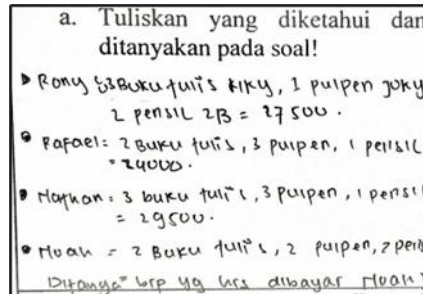 a. Tuliskan yang diketahui dan
ditanyakan pada soal!
Rony : 3 Buku tulis kiky, 1 pulpen joky
2 pensil 2B = 27500.
Rafael: 2 Buku tulis, 3 pulpen, 1 pensil
= 24000.
Nathan: 3 buku tulis, 3 pulpen, 1 pensil
= 29500.
Noah = 2 Buku tulis, 2 pulpen, 2 pens
Ditanya = brp yg hrs dibayar Noah?